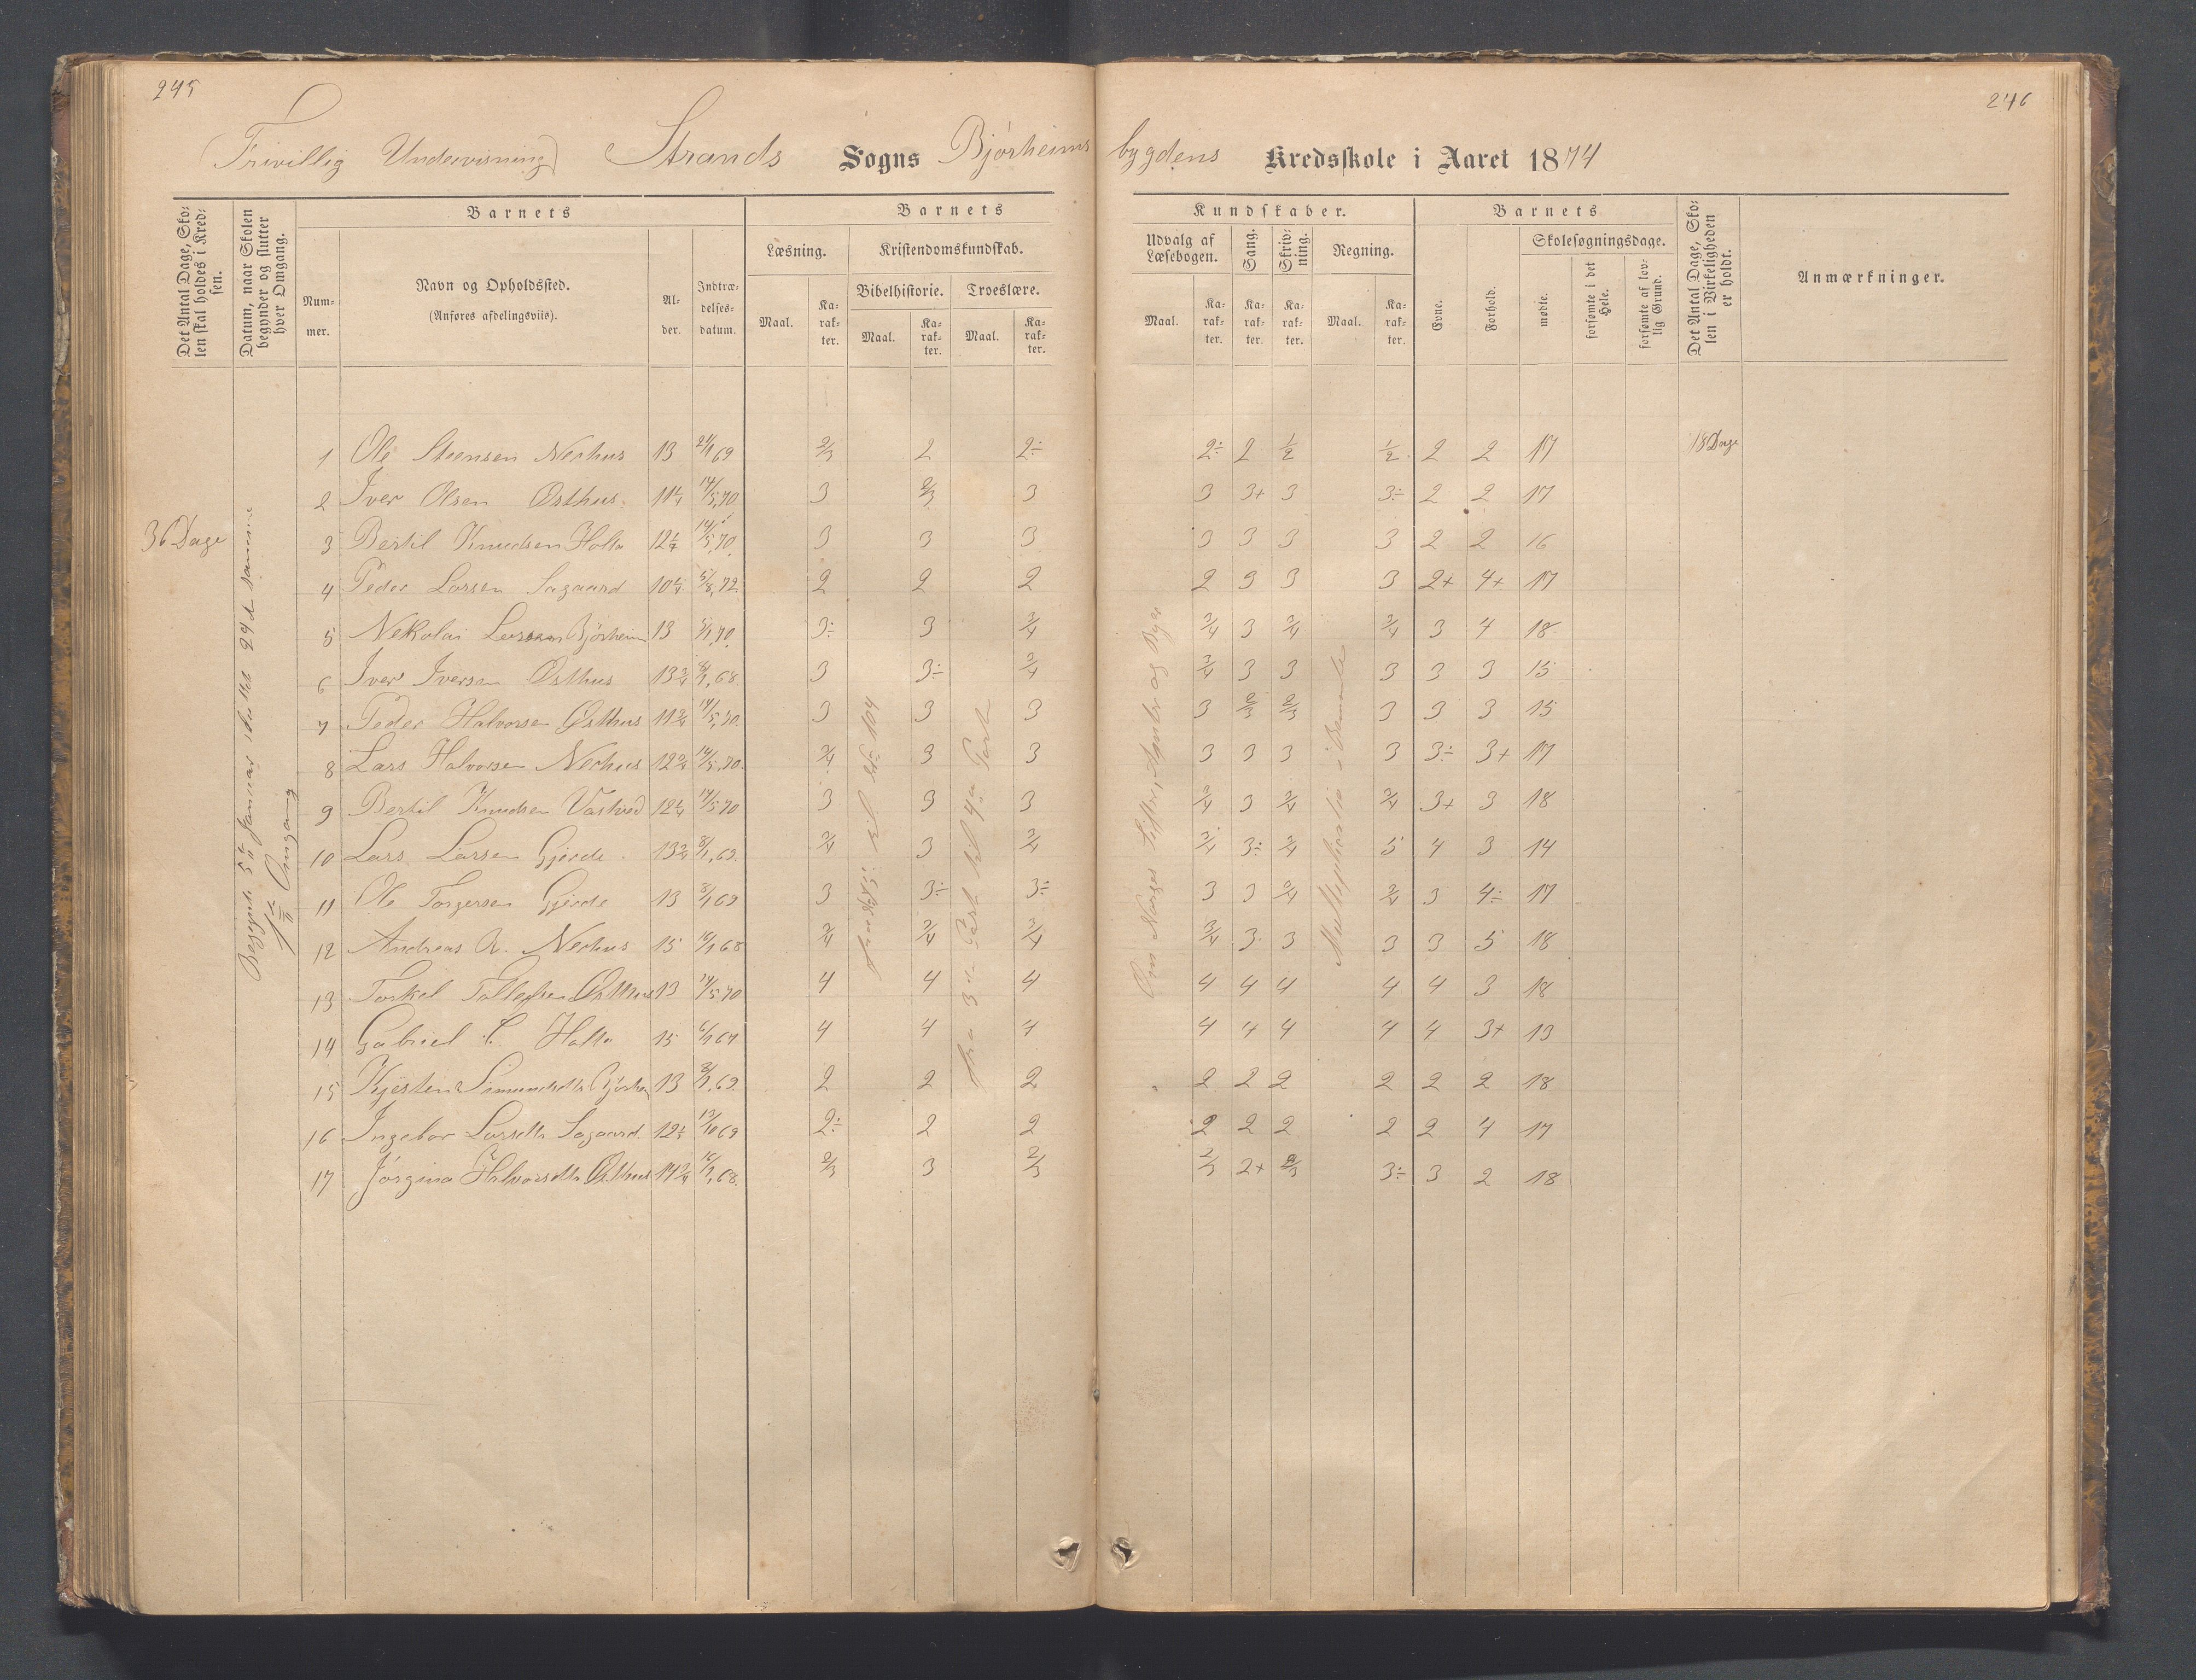 245
246
(Frivillig Undervisning) Strands Sogns Bjørheims
bygdens Kredsskole i Aaret 1874
Det Antal Dage, Skolen skal holdes i Kredsen.
Datum, naar Skolen begynder og slutter hver Omgang.
Barnets
Nummer.
Navn og Opholdssted.
(Anføres afdelingsviis).
Alder.
Indtrædelsesdatum.
Barnets
Læsning.
Kristendomskundskab.
Bibelhistorie.
Troeslære.
Maal.
Karakter.
Maal.
Karakter.
Maal.
Karakter.
Kundskaber.
Udvalg af Læsebogen.
Sang.
Skrivning.
Regning.
Maal.
Karakter.
Karakter.
Karakter.
Maal.
Karakter.
Barnets
Evne.
Forhold.
Skolesøgningsdage.
mødte.
forsømte i det Hele.
forsømte af lovlig Grund.
Det Antal Dage, Skolen i Virkeligheden er holdt.
Anmærkninger.
36 Dage
Begyndt 5te Januar sluttet 24de samme
1ste Omgang
1 Ole Steensen Nerhus 13 21/1 69 2/3 2 2÷ 2÷ 2 1/2 1/2 2 2 17 18 Dage
2 Iver Olsen Østhus 11 1/4 14/5,70 3 2/3 3 3 3+ 3 3÷ 2 2 17
3 Bertil Knudsen Holta 12 1/4 14/5,70 3 3 3 3 3 3 3 2 2 16
4 Peder Larsen Sagaard 10 1/4 5/8,72 2 2 2 2 3 3 3 2+ 4+ 17
5 Nekolai Larsen Bjørheim 13 5/1,70 3÷ 3 3/4 3/4 3 3/4 3/4 3 4 18
6 Iver Iversen Østhus 13 3/4 8/1,68 3 3÷ 3/4 3/4 3 3 3 3 3 15
7 Peder Halvorsen Østhus 11 3/4 14/5,70 3 3 3 3 2/3 2/3 3 3 3 15
8 Lars Halvorsen Nerhus 12 3/4 14/5,70 3/4 3 3 3 3 3 3 3÷ 3+ 17
9 Bertil Knudsen Vastved 12 1/4 14/5 70 3 3 3 3/4 3 3/4 3/4 3+ 3 18
10 Lars Larsen Gjerde 13 3/4 8/1,69 3/4 3 3/4 3/4 3÷ 3/4 5 4 3 14
11 Ole Torgersen Gjerde 13 8/1 69 3 3÷ 3÷ 3 3 3/4 3/4 3 4÷ 17
12 Andreas R. Nerhus 15 16/1 68 3/4 3/4 3/4 3/4 3 3 3 3 5 18
13 Torkel Tollefsen Østhus 13 14/5 70 4 4 4 4 4 4 4 4 3 18
14 Gabriel Holta 15 6/1 67 4 4 4 4 4 4 4 4 3+ 13
15 Kjestine Simunsdtr Bjørheim 13 8/1,69 2 2 2 2 2 2 2 2 2 18
16 Ingebor Larsdtr Sagaard 12 1/3 13/10 69 2÷ 2 2 2 2 2 2 2 4 17
17 Jørgina Halvorsdtr Østhus 14 3/4 16/1,68 2/3 3 2/3 2/3 2+ 2/3 3÷ 3 2 18
fra 3die Part til 4de Part
Om Norges